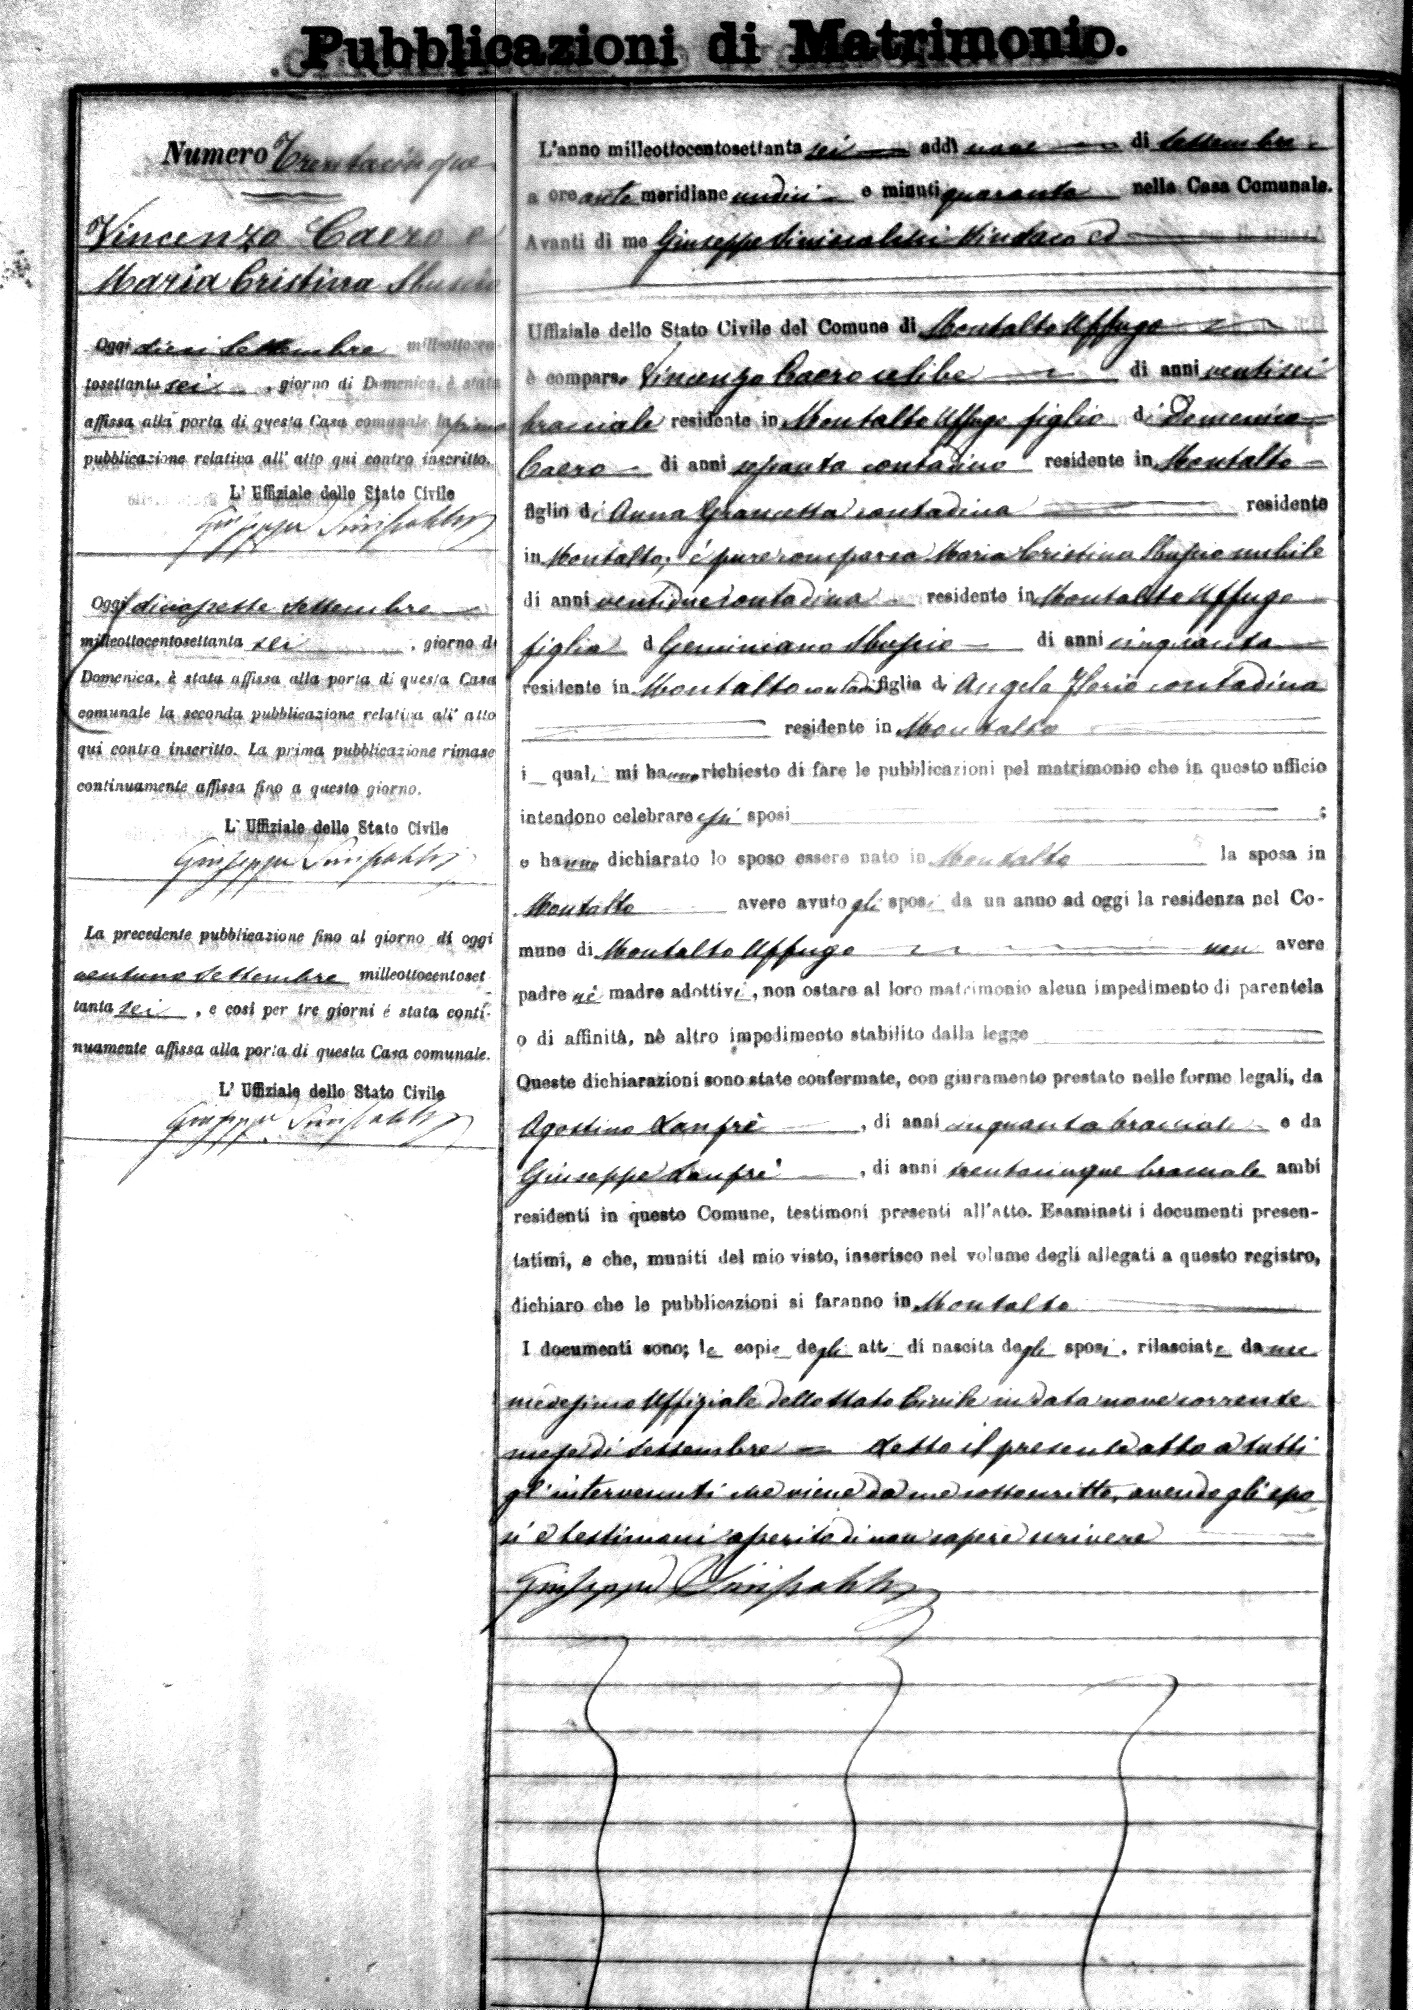 Pubblicazioni di Matrimonio.
Numero Trentacinque
Vincenzo Caero e
Maria Cristina
Oggi dieci Settembre milleottocen-
tosettanta sei, giorno di Domenica, è stata
affissa alla porta di questa Casa comunale la prima
pubblicazione relativa all'atto qui contro inscritto.
L'Uffiziale dello Stato Civile
Giuseppe
Oggi diciassette Settembre
milleottocentosettanta sei, giorno di
Domenica, è stata affissa alla porta di questa Casa
comunale la seconda pubblicazione relativa all'atto
qui contro inscritto. La prima pubblicazione rimase
continuamente affissa fino a questo giorno.
L'Uffiziale dello Stato Civile
Giuseppe
La precedente pubblicazione fino al giorno di oggi
ventuno Settembre milleottocentoset
tanta sei, e così per tre giorni é stata conti-
nuamente affissa alla porta di questa Casa comunale.
L'Uffiziale dello Stato Civile
Giuseppe
L'anno milleottocentosettanta sei addì nove di Settembre
a ore ante meridiane undici e minuti quaranta nella Casa Comunale.
Avanti di me Giuseppe Sindaco ed
Uffiziale dello Stato Civile del Comune di Montalto Uffugo
è comparso Vincenzo Caero celibe di anni ventisei
bracciale residente in Montalto Uffugo figlio di Domenico
Caero di anni sessanta contadino residente in Montalto
figlio di Anna contadina residente
in Montalto; è pure comparsa Maria Cristina nubile
di anni ventidue contadina residente in Montalto Uffugo
figlia d Geminiano di anni cinquanta
residente in Montalto figlia di Angela contadina
residente in Montalto
i quali mi hanno richiesto di fare le pubblicazioni pel matrimonio che in questo ufficio
intendono celebrare essi sposi ;
e hanno dichiarato lo sposo essere nato in Montalto la sposa in
Montalto avere avuto gli sposi da un anno ad oggi la residenza nel Co-
mune di Montalto Uffugo non avere
padre nè madre adottivi, non ostare al loro matrimonio alcun impedimento di parentela
o di affinità, nè altro impedimento stabilito dalla legge
Queste dichiarazioni sono state confermate, con giuramento prestato nelle forme legali, da
Agostino Lanfrè, di anni cinquanta bracciale e da
Giuseppe Lanfrè, di anni trentacinque bracciale ambi
residenti in questo Comune, testimoni presenti all'atto. Esaminati i documenti presen-
tatimi, e che, muniti del mio visto, inserisco nel volume degli allegati a questo registro,
dichiaro che le pubblicazioni si faranno in Montalto
I documenti sono; le copie degli atti di nascita degli sposi, rilasciate da me
medesimo Uffiziale dello Stato Civile in data nove corrente
mese di Settembre = Letto il presente atto a tutti
gl'intervenuti che viene da me sottoscritto, avendo gli spo
si e testimoni asserito di non sapere scrivere
Giuseppe